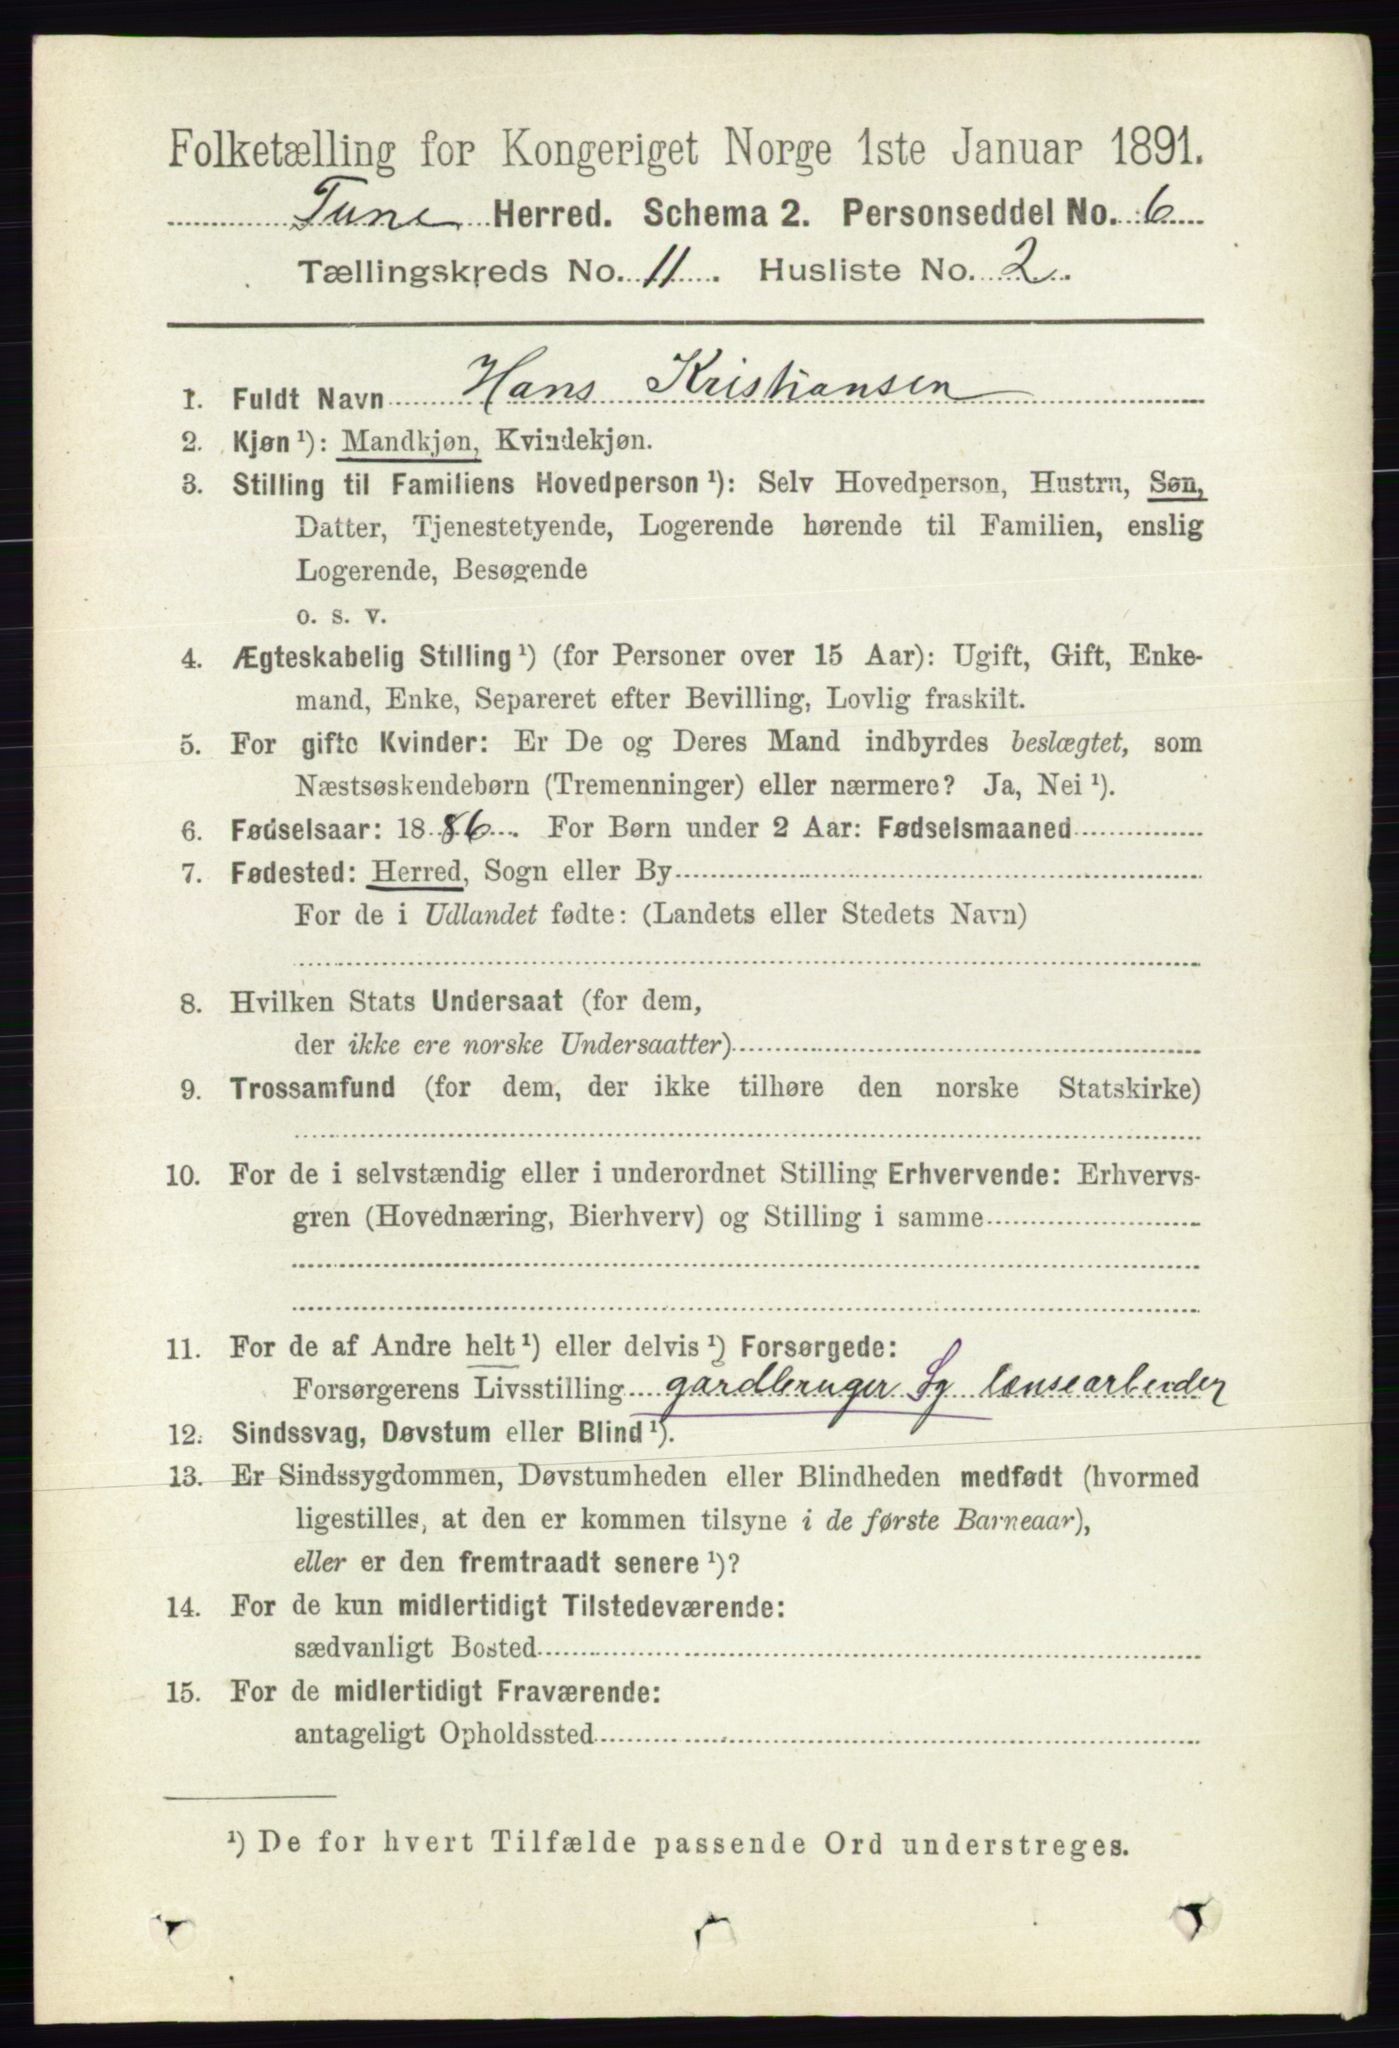 Folketælling for Kongeriget Norge 1ste Januar 1891.
Tune Herred. Schema 2. Personseddel No. 6
Tællingskreds No. 11. Husliste No. 2.
1. Fuldt Navn Hans Kristiansen
2. Kjøn ¹): Mandkjøn, Kvindekjøn.
3. Stilling til Familiens Hovedperson ¹): Selv Hovedperson, Hustru, Søn,
Datter, Tjenestetyende, Logerende hørende til Familien, enslig
Logerende, Besøgende
o. s. v.
4. Ægteskabelig Stilling ¹) (for Personer over 15 Aar): Ugift, Gift, Enke-
mand, Enke, Separeret efter Bevilling, Lovlig fraskilt.
5. For gifte Kvinder: Er De og Deres Mand indbyrdes beslægtet, som
Næstsøskendebørn (Tremenninger) eller nærmere? Ja, Nei ¹).
6. Fødselsaar: 1886. For Børn under 2 Aar: Fødselsmaaned
7. Fødested: Herred, Sogn eller By
For de i Udlandet fødte: (Landets eller Stedets Navn)
8. Hvilken Stats Undersaat (for dem,
der ikke ere norske Undersaatter)
9. Trossamfund (for dem, der ikke tilhøre den norske Statskirke)
10. For de i selvstændig eller i underordnet Stilling Erhvervende: Erhvervs-
gren (Hovednæring, Bierhverv) og Stilling i samme
11. For de af Andre helt ¹) eller delvis ¹) Forsørgede:
Forsørgerens Livsstilling gardbruger Sg lænsearbeider
12. Sindssvag, Døvstum eller Blind ¹).
13. Er Sindssygdommen, Døvstumheden eller Blindheden medfødt (hvormed
ligestilles, at den er kommen tilsyne i de første Barneaar),
eller er den fremtraadt senere ¹)?
14. For de kun midlertidigt Tilstedeværende:
sædvanligt Bosted
15. For de midlertidigt Fraværende:
antageligt Opholdssted
¹) De for hvert Tilfælde passende Ord understreges.